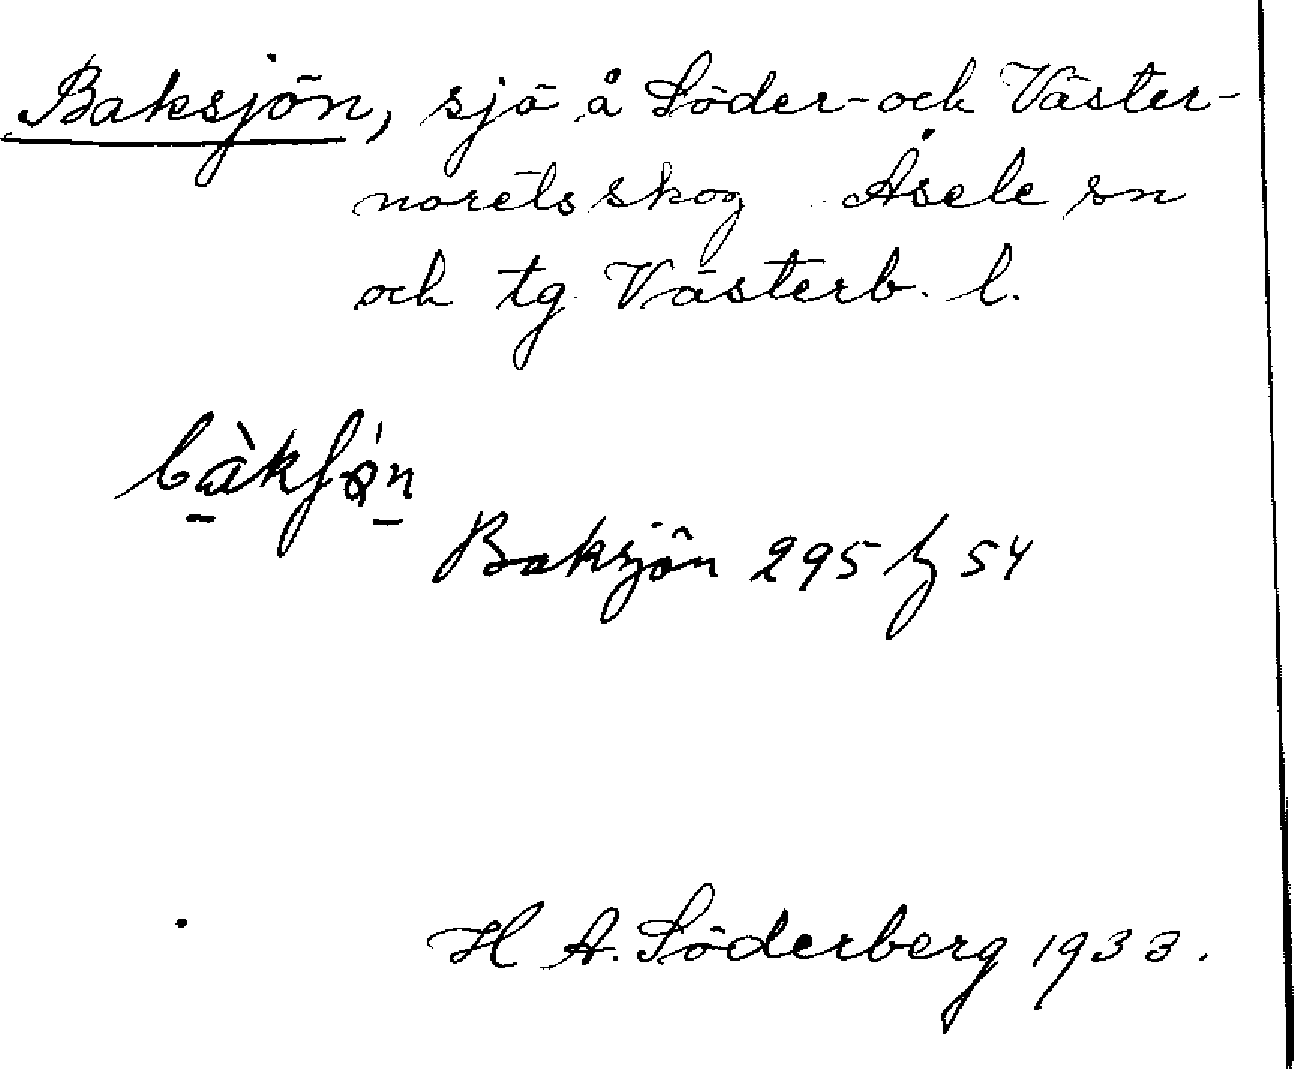 Baksjön, sjö å Söder- och Väster-
norets skog Åsele sn
och tg Västerb. l.
Baksjön 295 54
H A. Söderberg 1933.